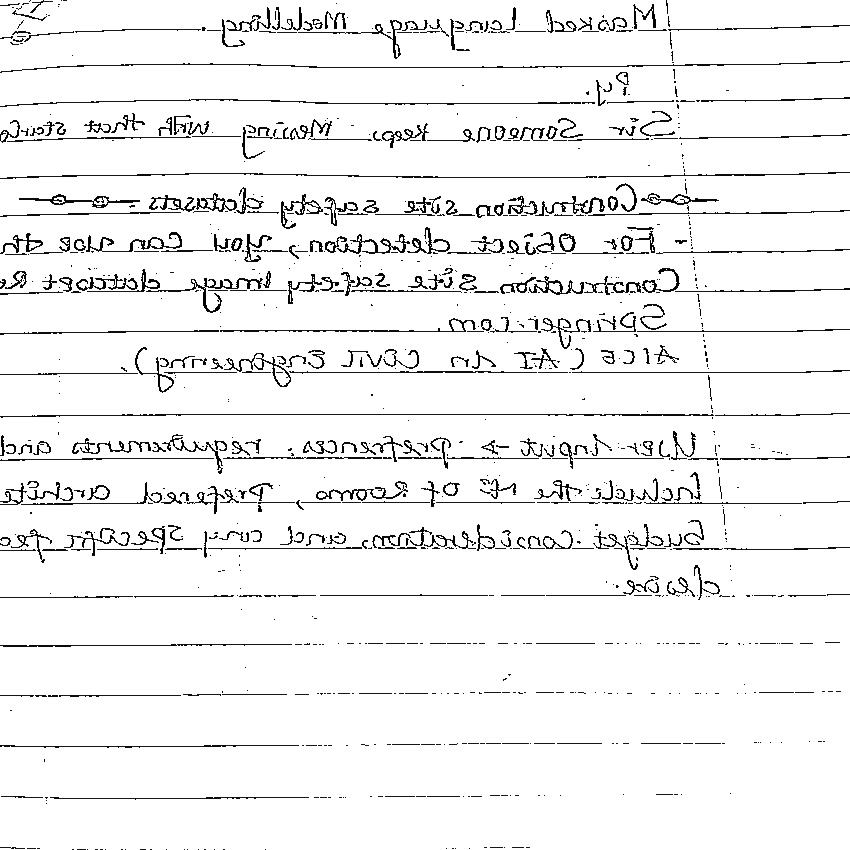 Masked Language Modelling.
Py.
Sir Someone keeps Messing with that starts
Construction site safety datasets
- For Object detection, you can use
Construction Site Safety Image dataset
Springer.com.
AICE (AI in Civil Engineering).
User Input → prefrences, requirements and
Include the Nº of Rooms, Prefered
budget consideration, and any specific
desire.